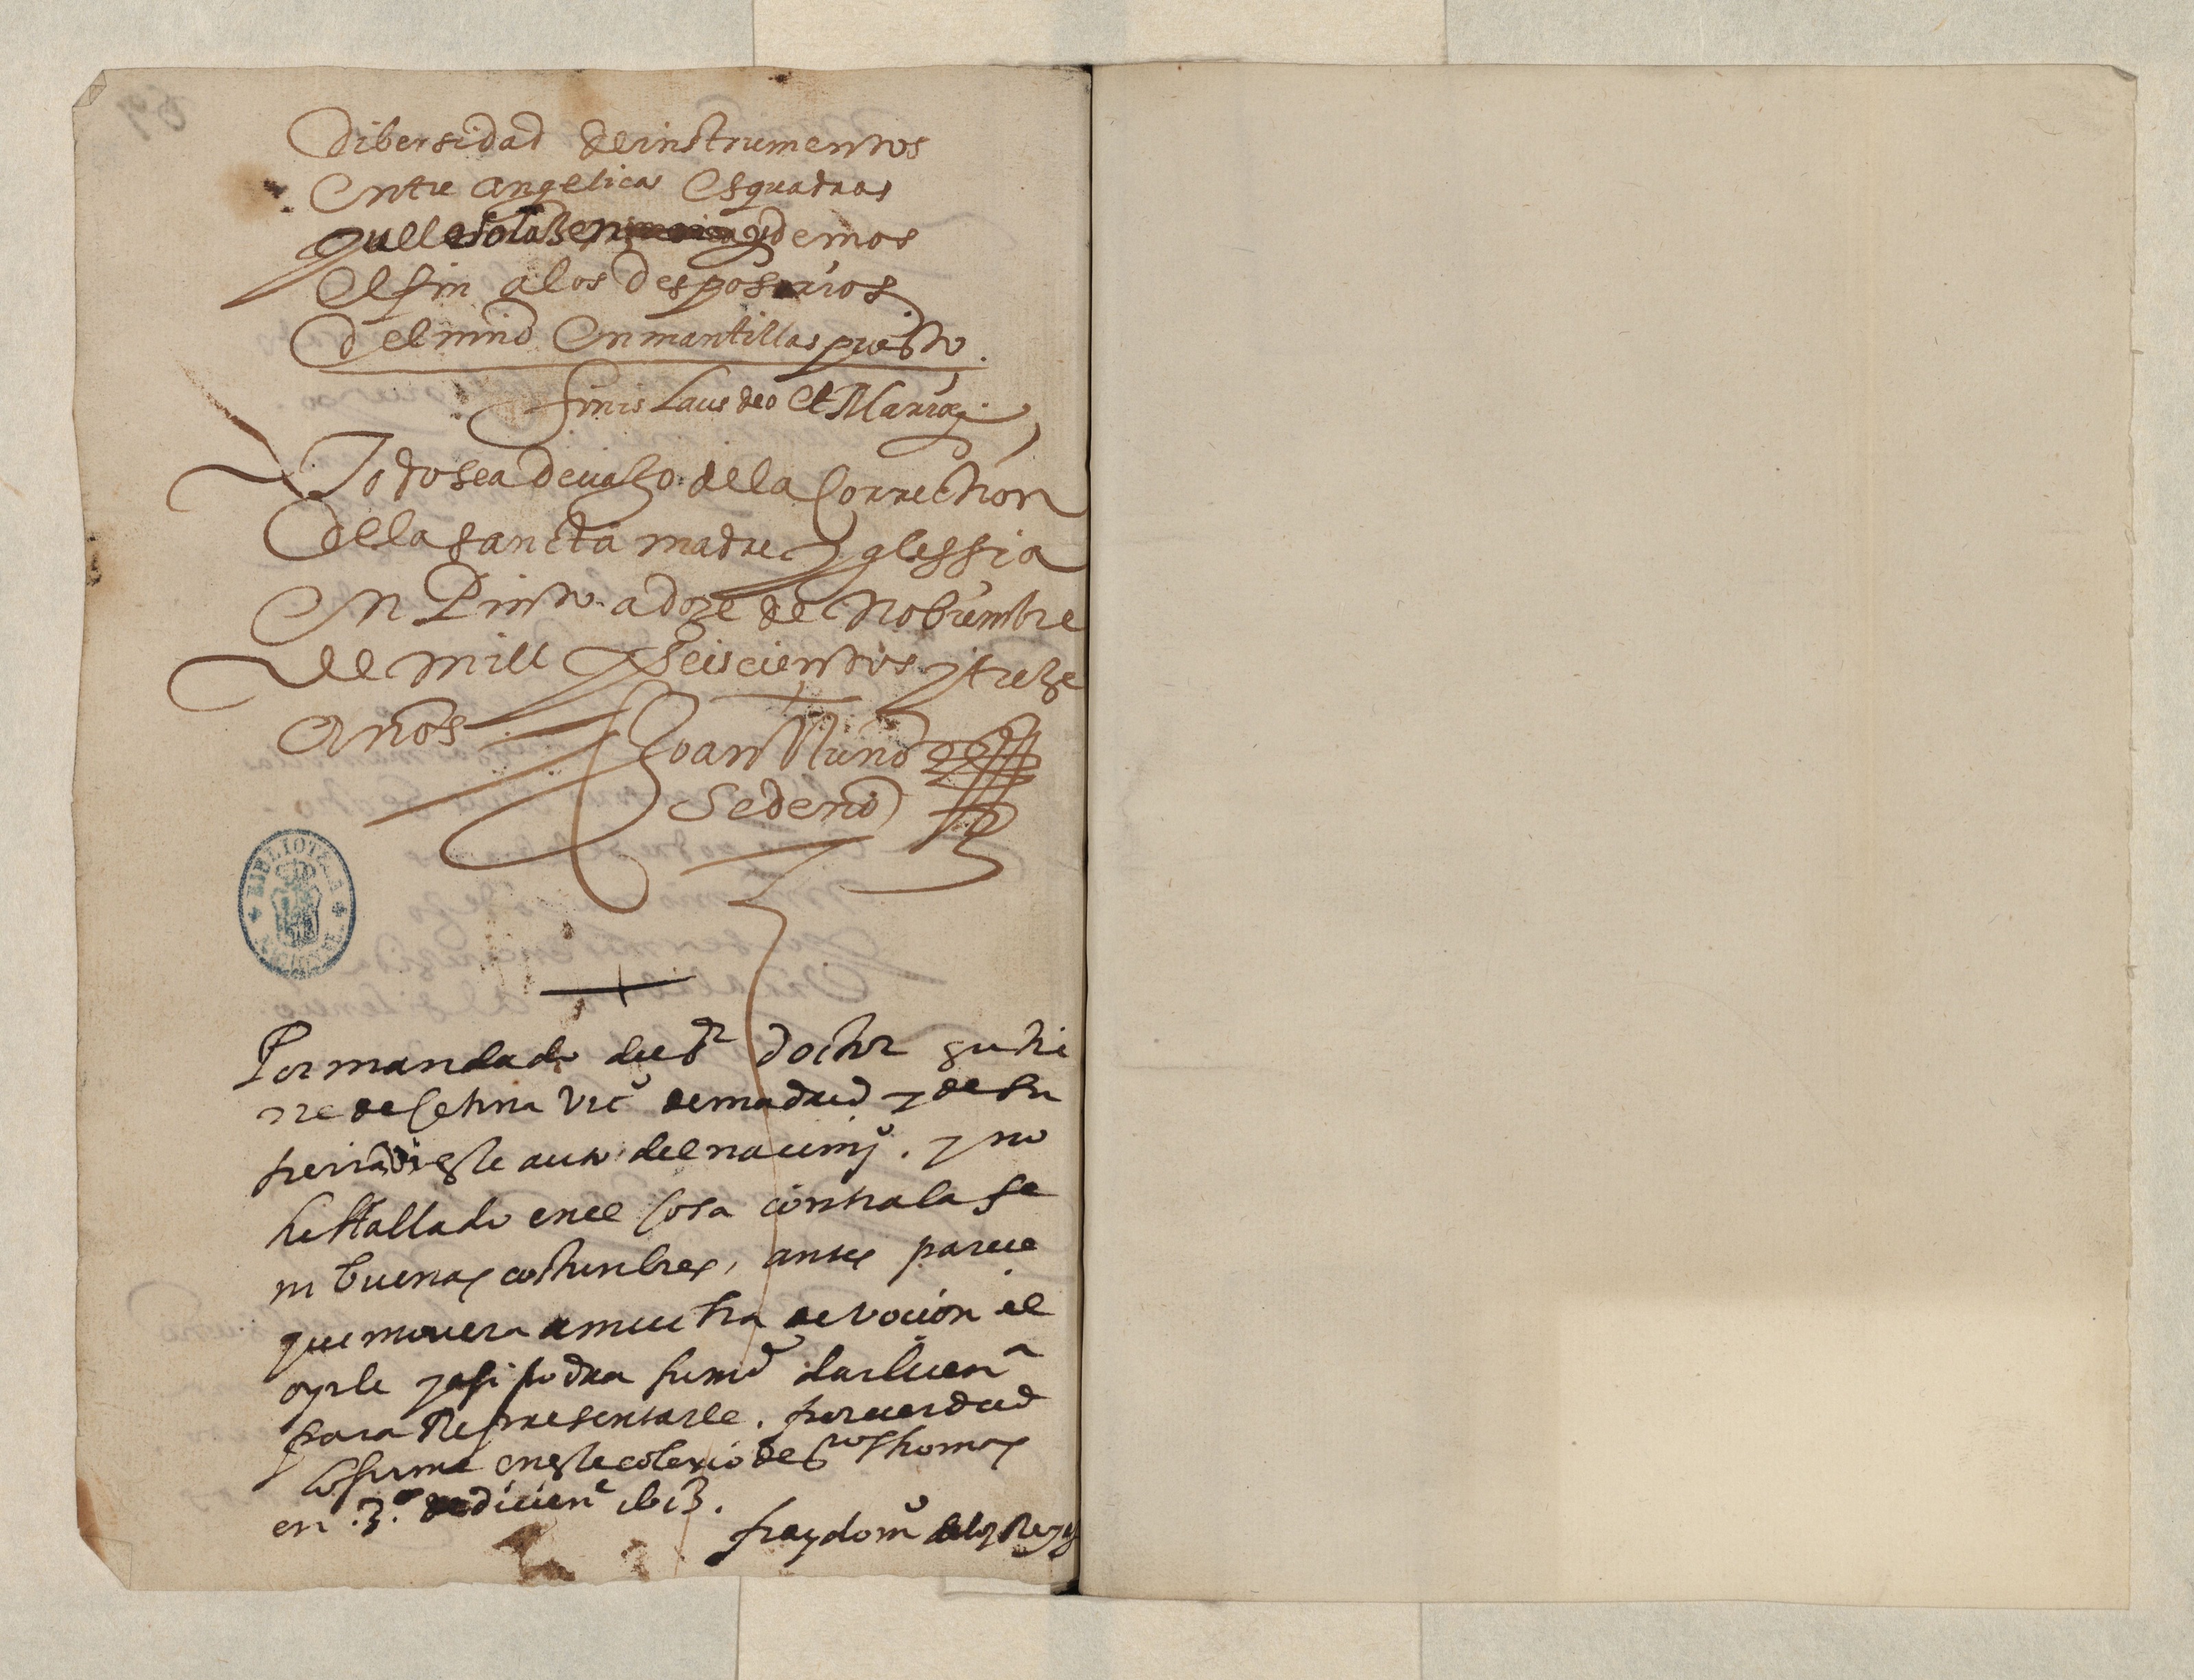 dibersidad de instrumentos
entre angelicas esquadras
demos
el fin a los desposorios
del niño en mantillas puesto.
finis Laus deo et Mariæ.
Todo sea devaxo de la Correction
de la sancta madre yglessia
En Pinto a doze de Nobiembre
de mill y seiscientos y treze
años
Joan Nuño
Sedeño
BIBLIOTECA
Por mandado del s.r doctor gutie
rre de Cetina Vic.o de madrid y de su
este auto del nacimi.o. y no
he Hallado en el cosa contra la fe
ni buenas costumbres, antes parece
que movera a mucha devocion el
oyrle y asi podra su m.d dar licen.a
para Representarle. por verdad
lo firme en este colexio de s.to thomas
en .3. de dicien.e 1613.
fray dom.o de los Reyes